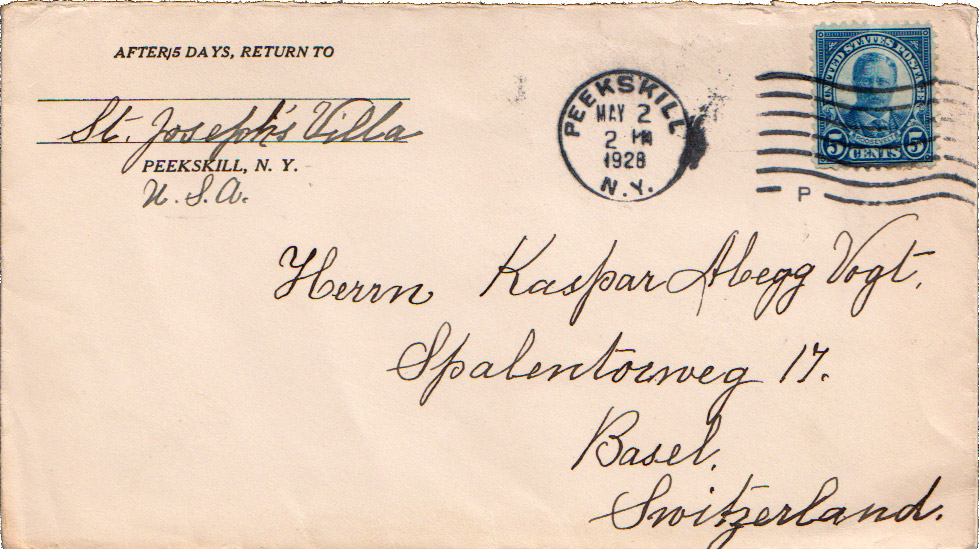 AFTER 5 DAYS, RETURN TO
St. Joseph's Villa
PEEKSKILL, N. Y.
U. S. A.
PEEKSKILL
MAY 2
2 PM
1928
N.Y.
UNITED STATES POSTAGE
ROOSEVELT
5 CENTS 5
P
Herrn Kaspar Abegg Vogt,
Spalentorweg 17.
Basel,
Switzerland.